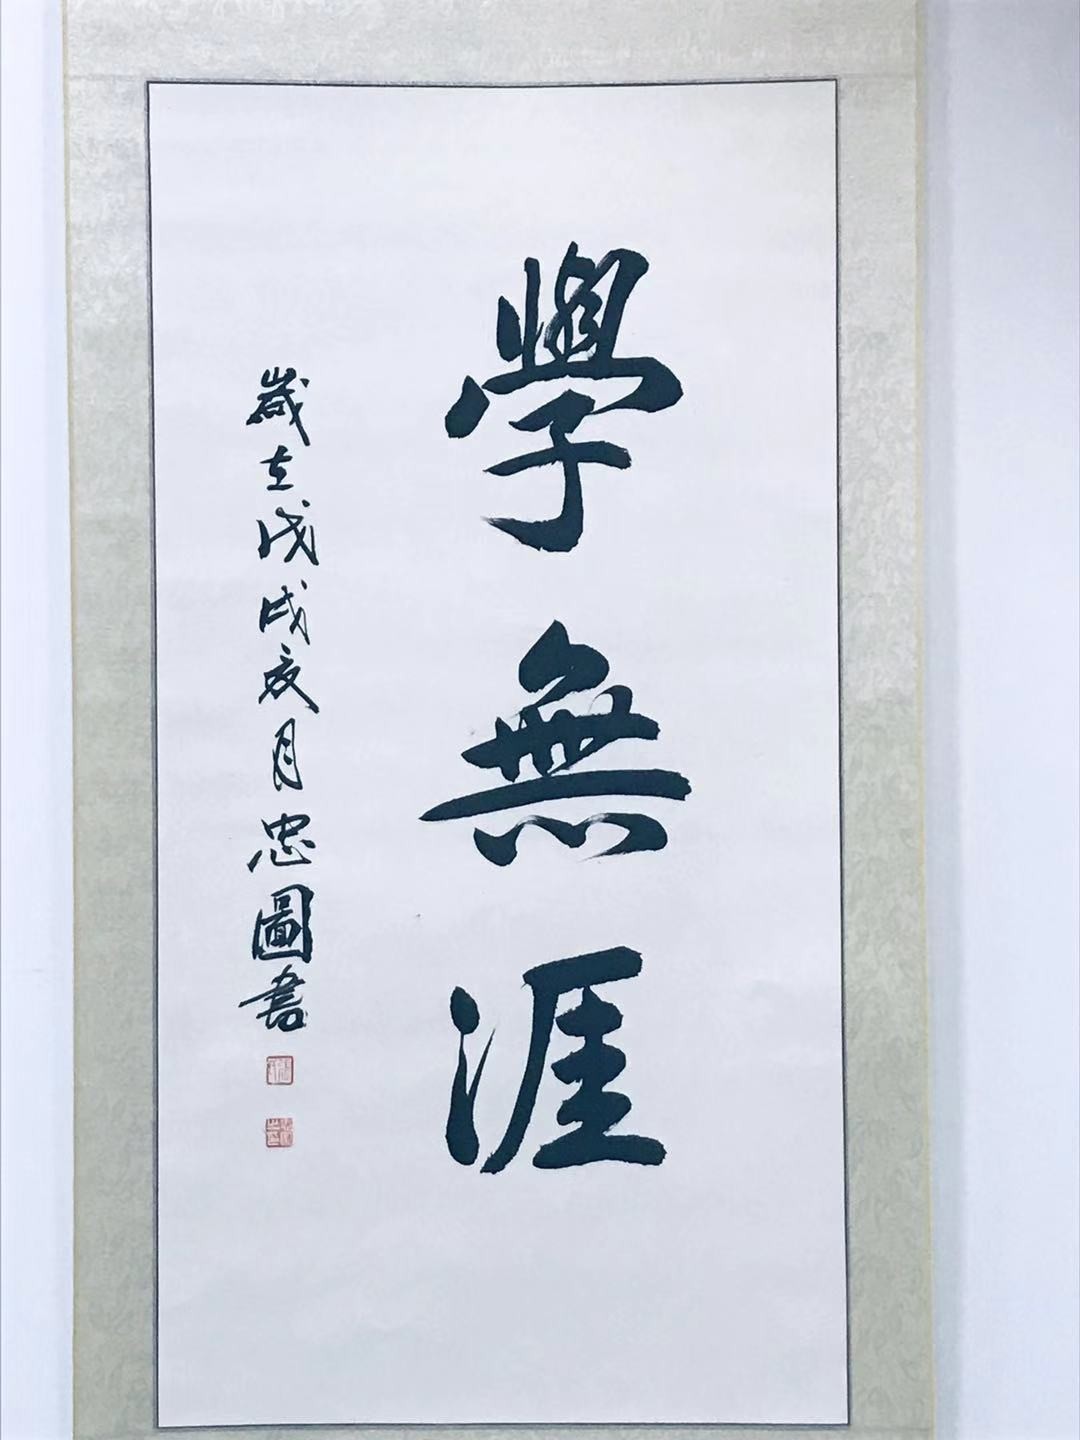 學無涯
歲在戊戌亥月忠圖書